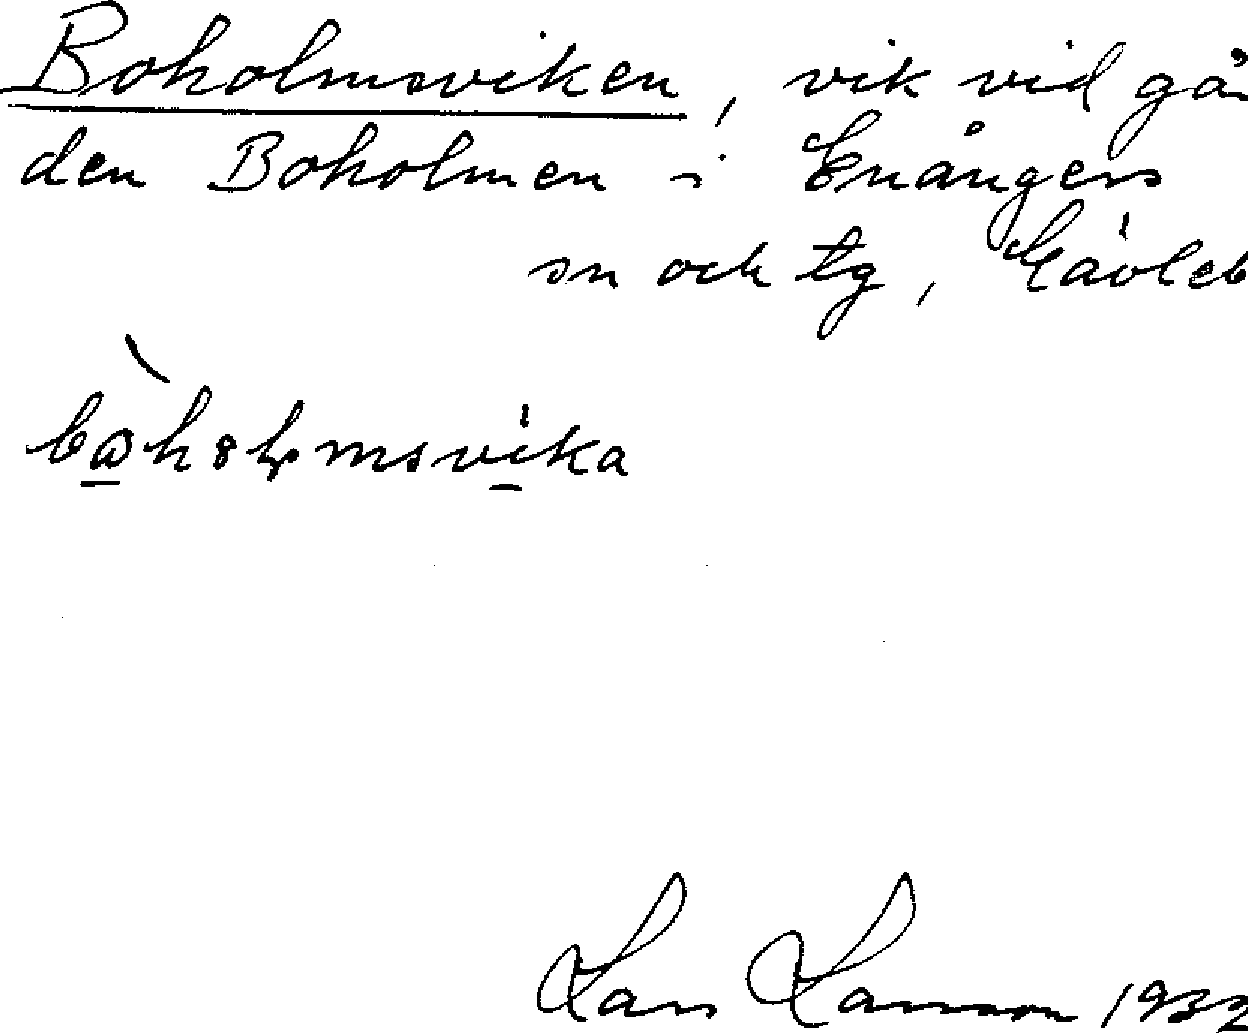 Boholmsviken, vik vid går
den Boholmen i Enångers
sn och tg, Gävleb
Lars Larsson 1932